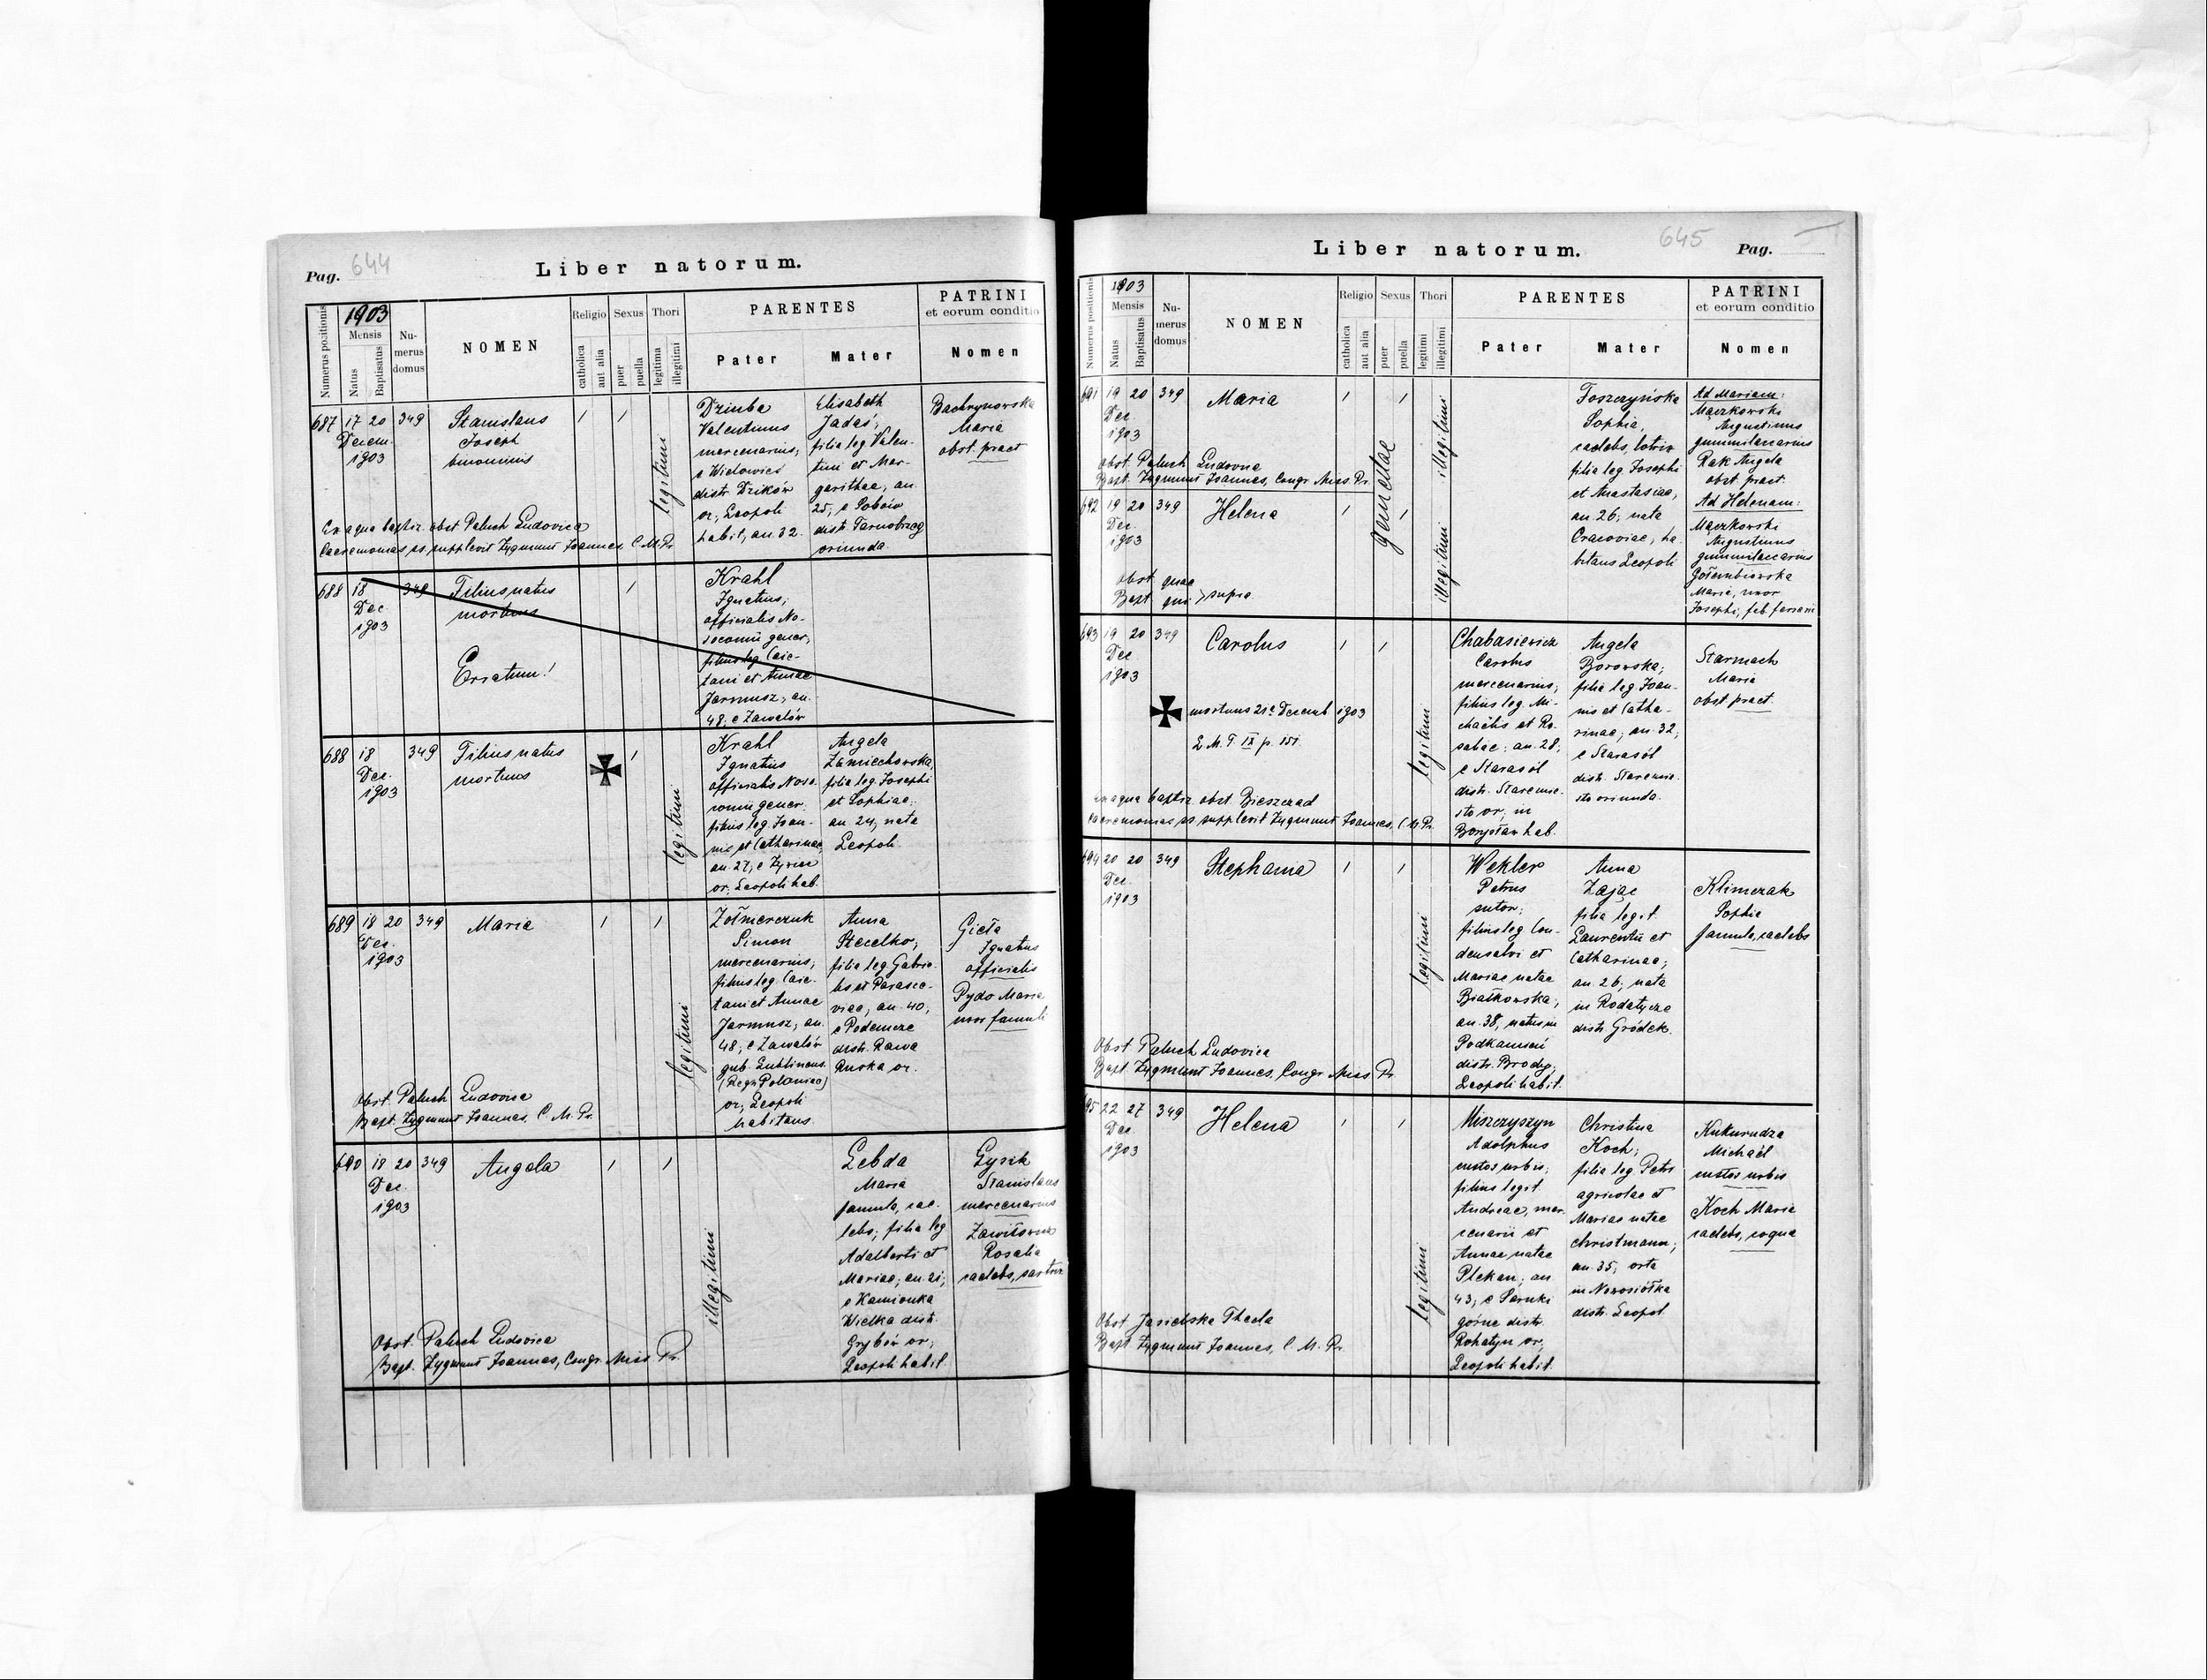 Pag. 644
Liber natorum.
Numerus positionis
1903
Mensis
Natus
Baptisatus
Numerus domus
NOMEN
Religio
catholica
aut alia
Sexus
puer
puella
Thori
legitima
illegitimi
PARENTES
Pater
Mater
PATRINI
et eorum conditio
Nomen
687 17 20 349
Decem.
1903
Stanislaus
Joseph
binominis
legitimi
Dziuba
Valentinus
mercenarius,
e Wielowieś
distr. Dzików
or., Leopoli
habit., an. 32.
Elisabeth
Jadaś,
filia leg. Valen-
tini et Mar-
garithae, an.
25, e Sobów
distr. Tarnobrzeg
oriunda
Bachrynowska
Maria
obst. pract.
Ex aqua baptiz. obst. Paluch Ludovica
Caeremonias ss. supplevit Zygmunt Joannes, C. M. Pr.
688 18 349
Dec.
1903
Filius natus
mortuus
Erratum!
Krahl
Ignatius,
officialis No-
socomii gener.,
filius leg. Caie-
tani et Annae
Jarmusz, an.
48, e Zawalów
688 18 349
Dec.
1903
Filius natus
mortuus
legitimi
Krahl
Ignatius
officialis Noso-
comii gener.
filius leg. Joan-
nis et Catharinae,
an. 27, e Zyrice
or. Leopoli hab.
Angela
Zamiechowska,
filia leg. Josephi
et Sophiae,
an. 24, nata
Leopoli
689 18 20 349
Dec.
1903
Maria
legitimi
Żołmierczuk
Simon
mercenarius,
filius leg. Caie-
tani et Annae
Jarmusz, an.
48, e Zawalów
gub. Lublinens.
(Regn. Poloniae)
or., Leopoli
habitans.
Anna
Stecelko,
filia leg. Gabrie-
lis et Parasce-
viae, an. 40,
e Podemsze
distr. Rawa
Ruska or.
Gieła
Ignatius
officialis
Pydo Maria
uxor famuli
Obst. Paluch Ludovica
Bapt. Zygmunt Joannes, C. M. Pr.
690 18 20 349
Dec.
1903
Angela
illegitimi
Lebda
Maria
famula, cae-
lebs, filia leg.
Adalberti et
Mariae, an. 21,
e Kamionka
Wielka distr.
Grybów or.,
Leopoli habit.
Łysik
Stanislaus
mercenarius
Zawiłowna
Rosalia
caelebs, sartrix
Obst. Paluch Ludovica
Bapt. Zygmunt Joannes, Congr. Miss. Pr.
Liber natorum.
645 Pag.
Numerus positionis
1903
Mensis
Natus
Baptisatus
Numerus domus
NOMEN
Religio
catholica
aut alia
Sexus
puer
puella
Thori
legitimi
illegitimi
PARENTES
Pater
Mater
PATRINI
et eorum conditio
Nomen
691 19 20 349
Dec.
1903
Maria
gemellae
illegitimi
Toszczyńska
Sophia,
caelebs, lotrix
filia leg. Josephi
et Anastasiae,
an. 26, nata
Cracoviae, ha-
bitans Leopoli
Ad Mariam:
Mączkowski
Augustinus
gummilacarius
Rak Angela
obst. pract.
Obst. Paluch Ludovica
Bapt. Zygmunt Joannes, Congr. Miss. Pr.
692 19 20 349
Dec.
1903
Helena
illegitimi
Ad Helenam:
Mączkowski
Augustinus
gummilacarius
Gołembiowska
Maria, uxor
Josephi, fab. ferrarii
Obst. quae
Bapt. qui > supra.
693 19 20 349
Dec.
1903
Carolus
mortuus 21a Decemb. 1903
L. M. T. IX p. 151.
legitimi
Chabasiewicz
Carolus
mercenarius,
filius leg. Mi-
chaëlis et Ro-
saliae, an. 28,
e Starasól
distr. Staremia-
sto or., in
Borysław hab.
Angela
Borowska,
filia leg. Joan-
nis et Catha-
rinae, an. 32,
e Starasól
distr. Staremia-
sto oriunda.
Starmach
Maria
obst. pract.
Ex aqua baptiz. obst. Bieszczad
Caeremonias ss. supplevit Zygmunt Joannes, C. M. Pr.
694 20 20 349
Dec.
1903
Stephania
legitimi
Wekler
Petrus
sutor,
filius leg. Con-
densalvi et
Mariae natae
Białkowska,
an. 38, natus in
Podkamień
distr. Brody,
Leopoli habit.
Anna
Zając
filia legit.
Laurentii et
Catharinae,
an. 26, nata
in Rodatycze
distr. Gródek.
Klimczak
Sophia
famula, caelebs
Obst. Paluch Ludovica
Bapt. Zygmunt Joannes, Congr. Miss. Pr.
695 22 27 349
Dec.
1903
Helena
legitimi
Miszczyszyn
Adolphus
custos urbis,
filius legit.
Andreae, mer-
cenarii et
Annae natae
Plekan, an.
43, e Sarnki
górne distr.
Rohatyn or.,
Leopoli habit.
Christina
Koch,
filia leg. Petri
agricolae et
Mariae natae
Christmann,
an. 35, orta
in Nowosiółka
distr. Leopol.
Kukurudza
Michaël
custos urbis
Koch Maria
caelebs, coqua
Obst. Jasielska Thecla
Bapt. Zygmunt Joannes, C. M. Pr.